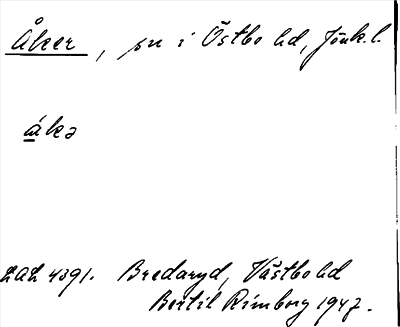 Åker, sn i Östbo hd, Jönk.l.
åkə
LAL 4391. Bredaryd, Västbo hd
Bertil Rimborg 1947.